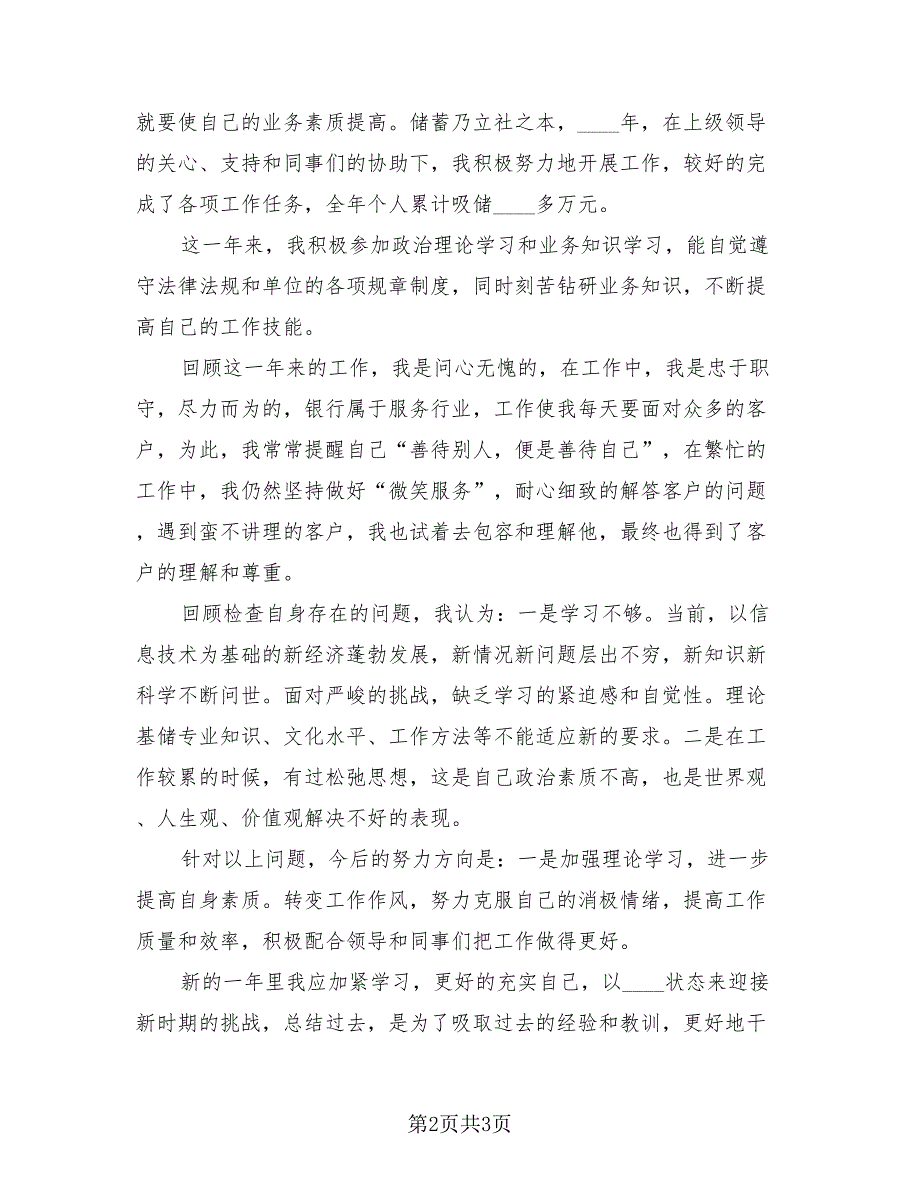 就要使自己的业务素质提高。储蓄乃立社之本，____年，在上级领导
的关心、支持和同事们的协助下，我积极努力地开展工作，较好的完
成了各项工作任务，全年个人累计吸储____多万元。
这一年来，我积极参加政治理论学习和业务知识学习，能自觉遵
守法律法规和单位的各项规章制度，同时刻苦钻研业务知识，不断提
高自己的工作技能。
回顾这一年来的工作，我是问心无愧的，在工作中，我是忠于职
守，尽力而为的，银行属于服务行业，工作使我每天要面对众多的客
户，为此，我常常提醒自己“善待别人，便是善待自己”，在繁忙的
工作中，我仍然坚持做好“微笑服务”，耐心细致的解答客户的问题
，遇到蛮不讲理的客户，我也试着去包容和理解他，最终也得到了客
户的理解和尊重。
回顾检查自身存在的问题，我认为：一是学习不够。当前，以信
息技术为基础的新经济蓬勃发展，新情况新问题层出不穷，新知识新
科学不断问世。面对严峻的挑战，缺乏学习的紧迫感和自觉性。理论
基储专业知识、文化水平、工作方法等不能适应新的要求。二是在工
作较累的时候，有过松弛思想，这是自己政治素质不高，也是世界观
、人生观、价值观解决不好的表现。
针对以上问题，今后的努力方向是：一是加强理论学习，进一步
提高自身素质。转变工作作风，努力克服自己的消极情绪，提高工作
质量和效率，积极配合领导和同事们把工作做得更好。
新的一年里我应加紧学习，更好的充实自己，以____状态来迎接
新时期的挑战，总结过去，是为了吸取过去的经验和教训，更好地干
第2页共3页